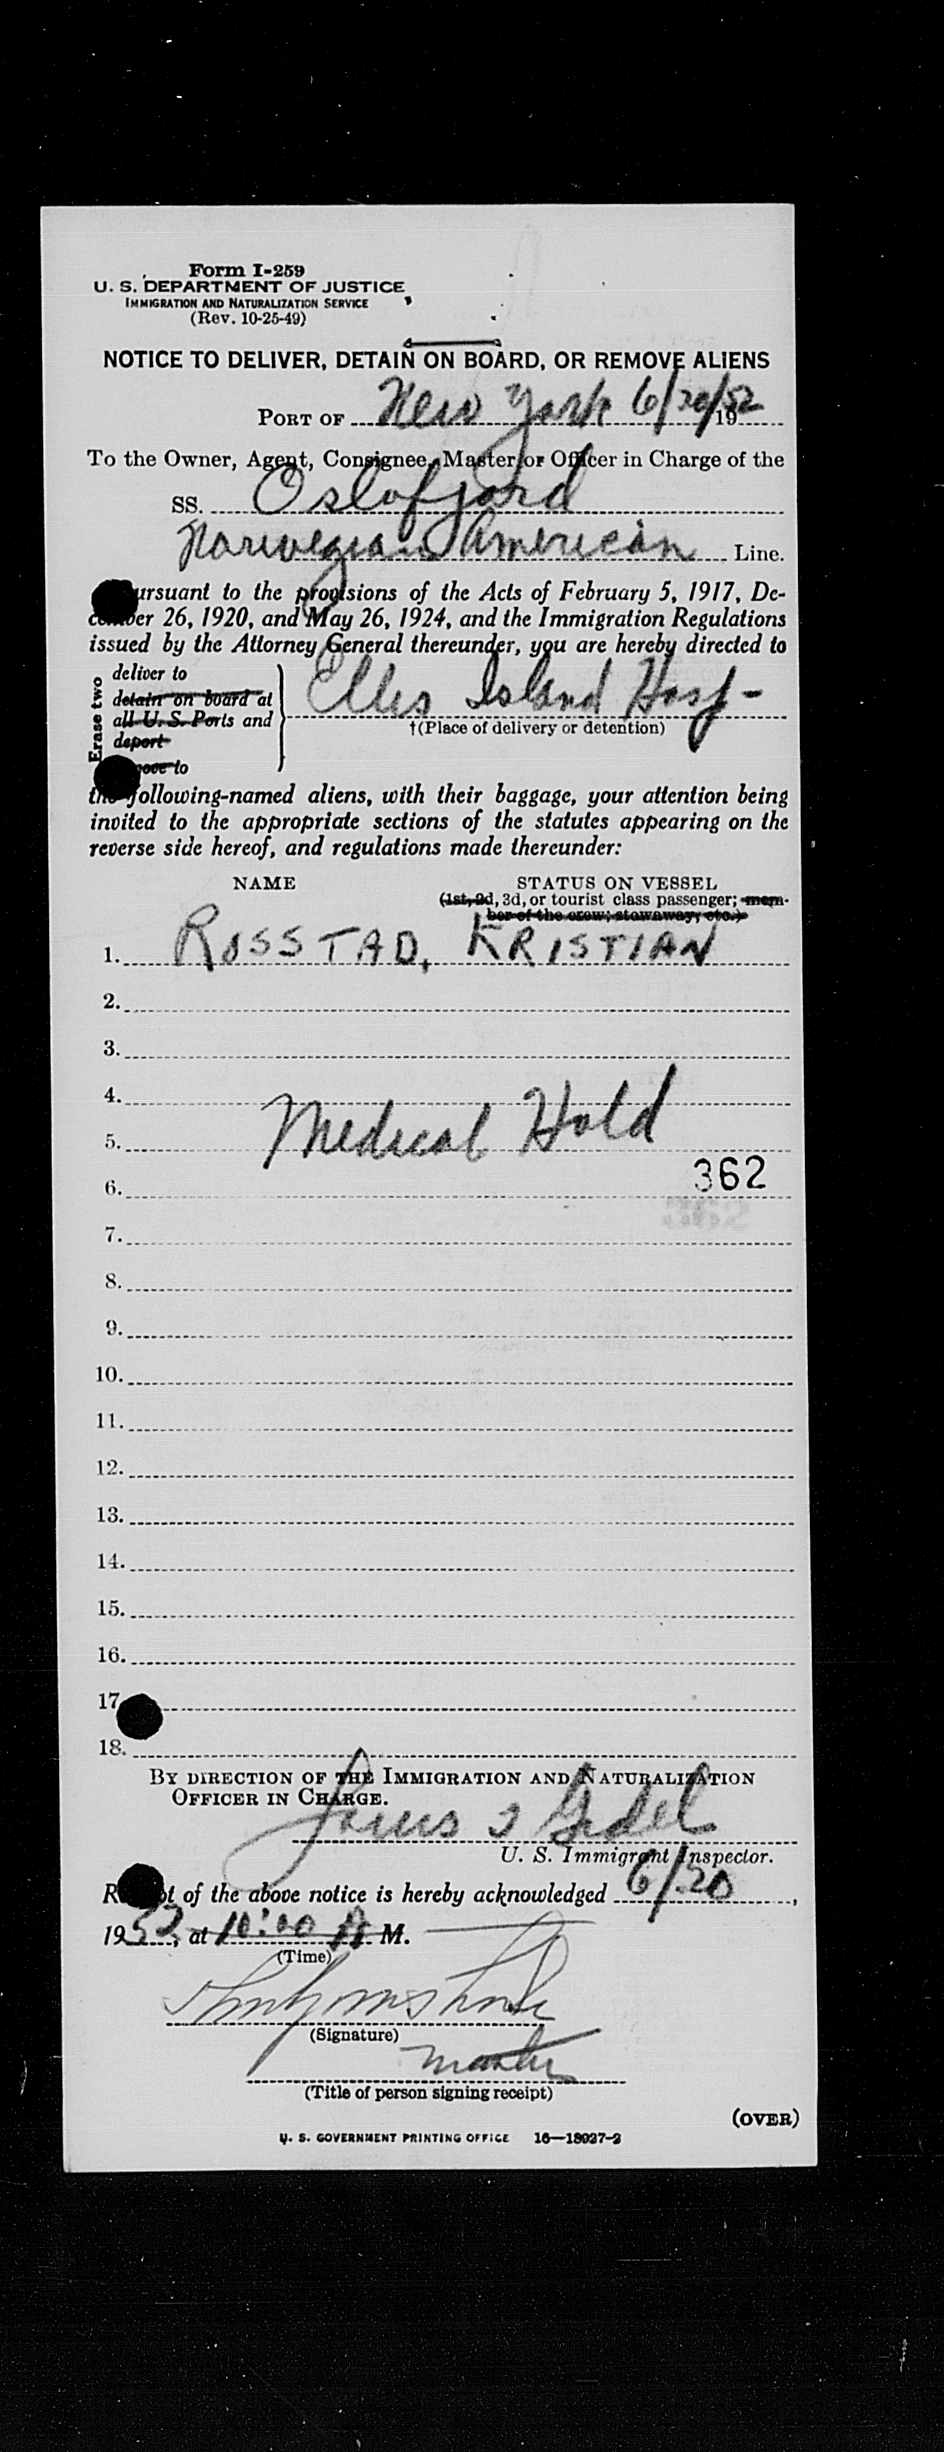 Form I-259
U. S. DEPARTMENT OF JUSTICE
IMMIGRATION AND NATURALIZATION SERVICE
(Rev. 10-25-49)
NOTICE TO DELIVER, DETAIN ON BOARD, OR REMOVE ALIENS
PORT OF New York 6/20/1952
To the Owner, Agent, Consignee, Master, or Officer in Charge of the
SS. Oslofjord
Norwegian American Line.
ursuant to the provisions of the Acts of February 5, 1917, De-
cember 26, 1920, and May 26, 1924, and the Immigration Regulations
issued by the Attorney General thereunder, you are hereby directed to
Erase two
deliver to
detain on board at
all U. S. Ports and
deport
move to
Ellis Island Hosp-
†(Place of delivery or detention)
the following-named aliens, with their baggage, your attention being
invited to the appropriate sections of the statutes appearing on the
reverse side hereof, and regulations made thereunder:
NAME STATUS ON VESSEL
(1st, 2d, 3d, or tourist class passenger; mem-
ber of the crew; stowaway; etc.)
1. ROSSTAD, KRISTIAN
2.
3.
4.
5. Medical Hold
362
6.
362
7.
8.
9.
10.
11.
12.
13.
14.
15.
16.
17
18.
BY DIRECTION OF THE IMMIGRATION AND NATURALIZATION
OFFICER IN CHARGE.
U. S. Immigrant Inspector.
R t of the above notice is hereby acknowledged 6/20,
1952, at 10:00 A M.
(Time)
(Signature)
Master
(Title of person signing receipt)
(OVER)
U. S. GOVERNMENT PRINTING OFFICE 16—18027-2